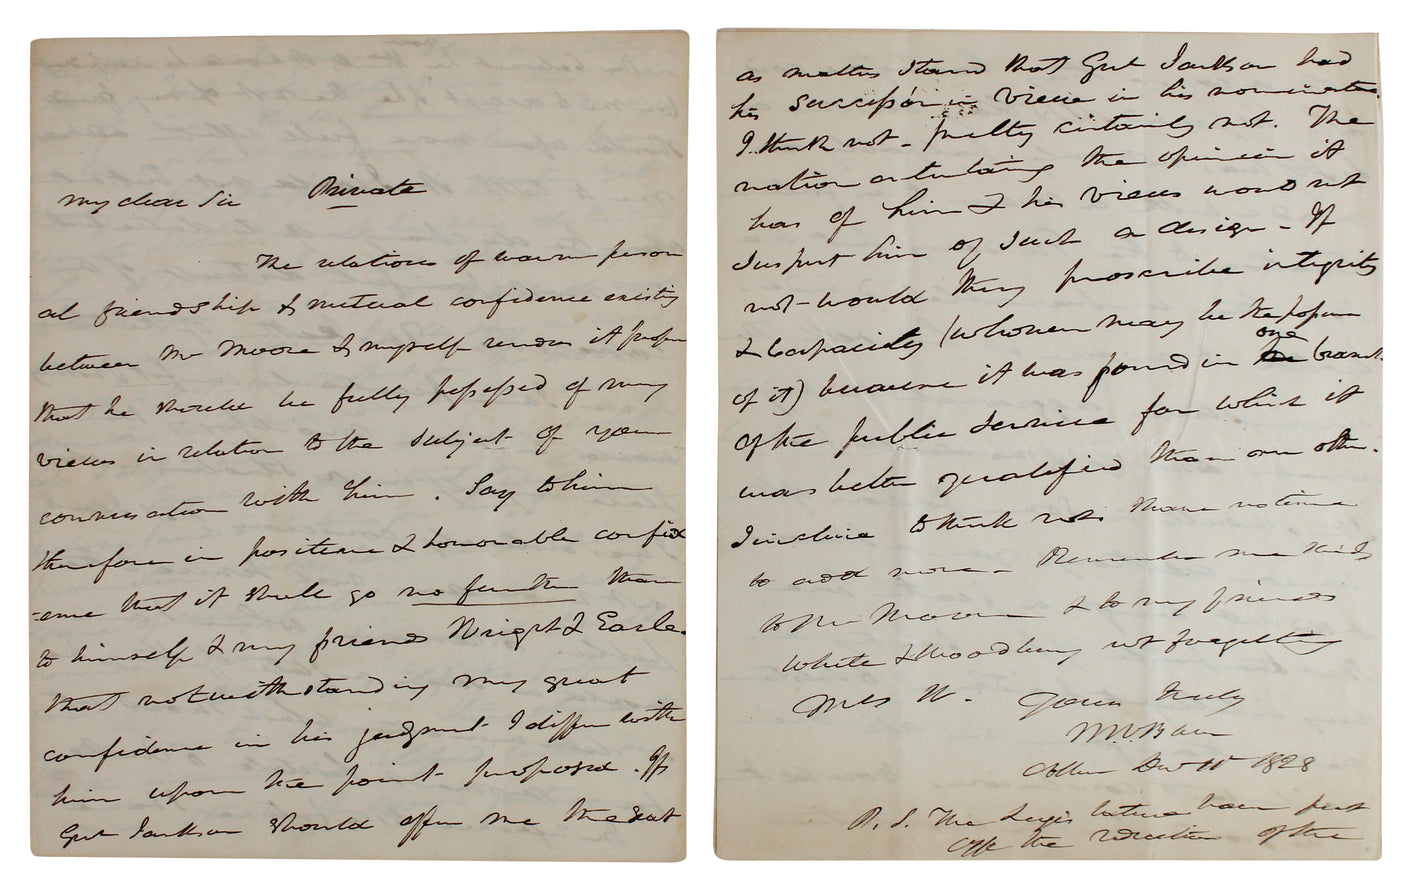 My dear Sir Private
The relations of warm person
al friendship & mutual confidence existing
between Mr Moore & myself renders it proper
that he should be fully possessed of my
views in relation to the subject of your
conversation with him. Say to him
therefore in positive & honorable confid
-ence that it shall go no further than
to himself & my friends Wright & Earle.
that notwithstanding my great
confidence in his judgment I differ with
him upon the point proposed. If
Genl Jackson should offer me the seat
as matters stand that Genl Jackson had
his succession in view in his nomination.
I think not - pretty certainly not. The
nation entertaining the opinion it
has of him & his views would not
suspect him of such a design - If
not - would they proscribe integrity
& capacity (whoever may be the
of it) because it was found in one branch
of the public service for which it
was better qualified than an other.
I incline to think not. I have not time
to add more - Remember me kindly
to Mr Moore & to my friends
White & Woodbury not forgetting
Mrs W. Yours truly
M V Buren
Dec 1828
P. S. The Legislature have put
off the election of the